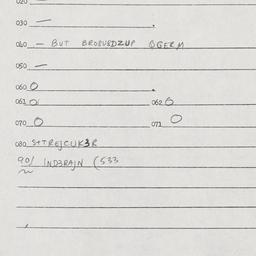 020 —
030 —
040 — BUT BROBUEDZUP QGERM
050 —
060 O
061 O 062 O
070 O 071 O
080 S+TREJCUK3R
90/ IND3RAJN (533